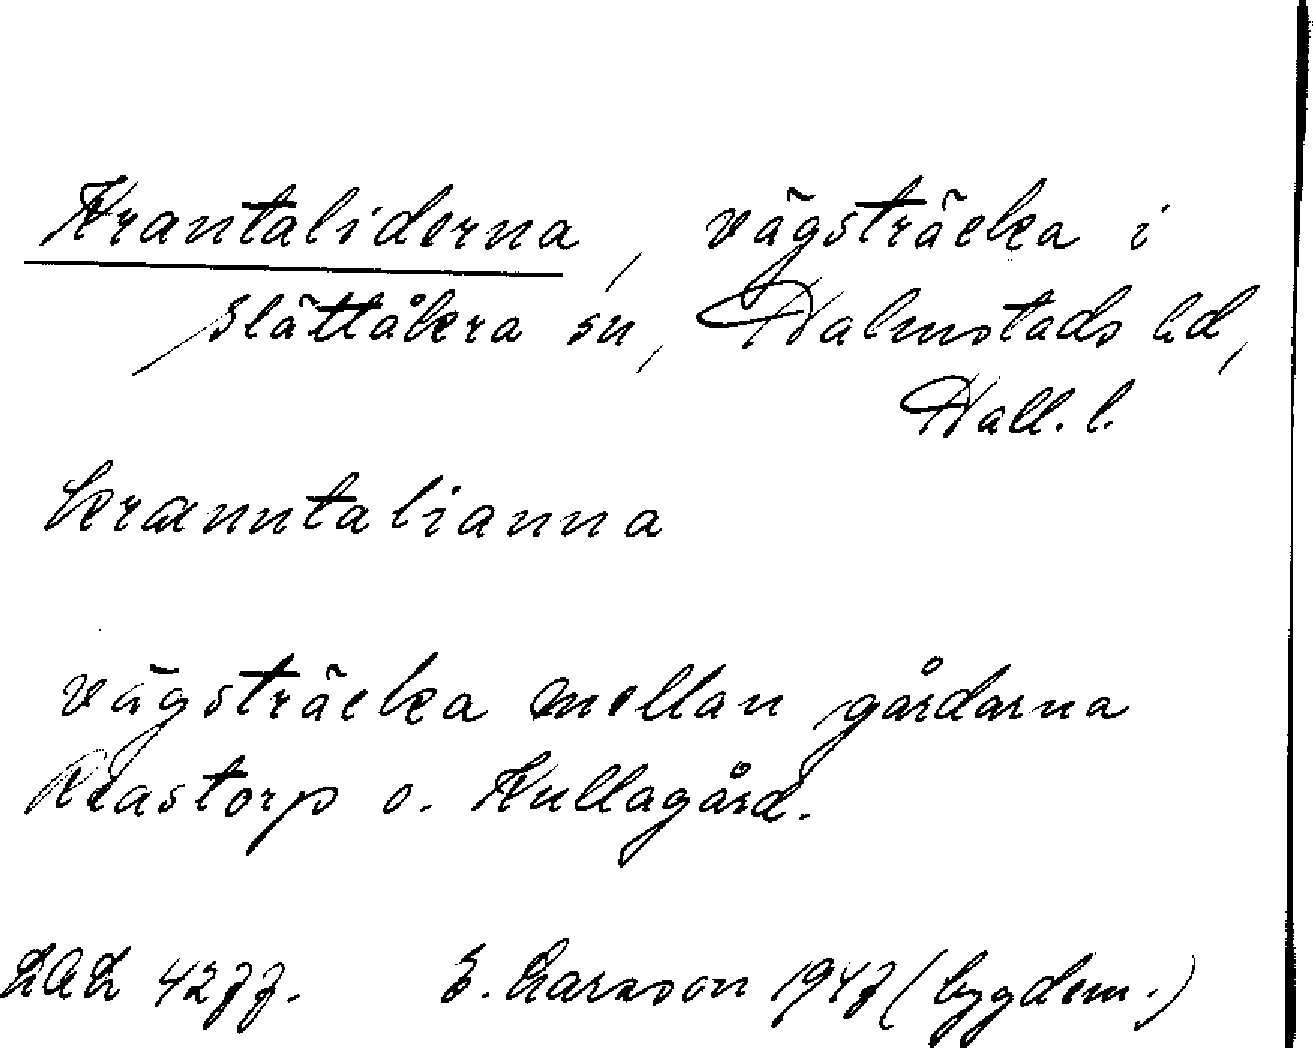 Krantaliderna, vägsträcka i
Slättåkra sn, Halmstads hd,
Hall. l.
kranntalianna
vägsträcka mellan gårdarna
Reastorp o. Kullagård.
LAL 4277. E. Larsson 1947 (bygdem.)